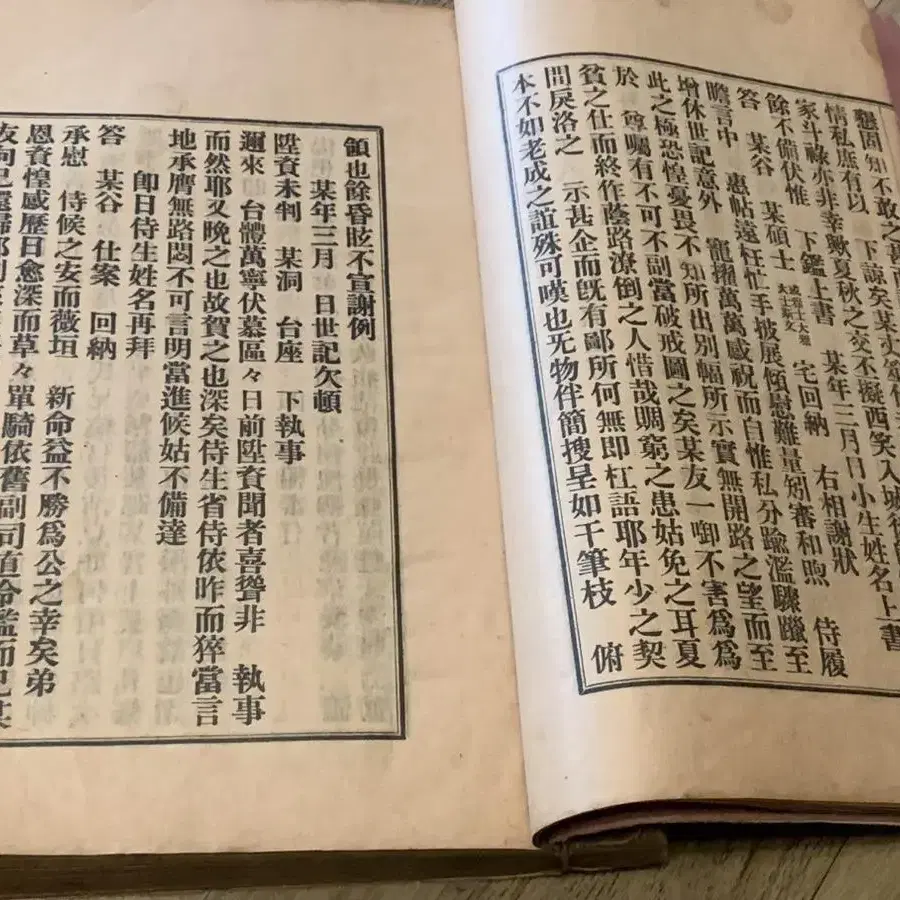 懇固知不敢之善
情私庶有以 下諒矣某丈
家斗祿亦非幸歟夏秋之交不擬西笑入城
餘不備伏惟 下鑑上書 某年三月日小生姓名上書
答 某谷 某碩士 宅回納 右相謝狀
瞻言中 惠帖遠枉忙手披展傾慰難量矧審和煦 侍履
增休世記意外 寵擢萬萬感祝而自惟私分踰濫驟躐至
此之極恐惶憂畏不知所出別幅所示實無開路之望而至
於 尊囑有不可不副當破戒圖之矣某友一啣不害爲爲
貧之仕而終作蔭路潦倒之人惜哉賙窮之患姑免之耳夏
間戾洛之 示甚企而旣有鄙所何無卽杠語耶年少之契
本不如老成之誼殊可嘆也旡物伴簡搜呈如干筆枝 俯
領也餘昏眩不宣謝例
某年三月 日世記欠頓
陞資未判 某洞 台座 下執事
邇來 台體萬寧伏慕區々日前陞資聞者喜聳非 執事
而然耶又晩之也故賀之也深矣侍生省侍依昨而猝當言
地承膺無路悶不可言明當進候姑不備達
卽日侍生姓名再拜
答 某谷 仕案 回納
承慰 侍候之安而薇垣 新命益不勝爲公之幸矣弟
恩資惶感歷日愈深而草々單騎依舊副司直命濫而已某
友向已還歸